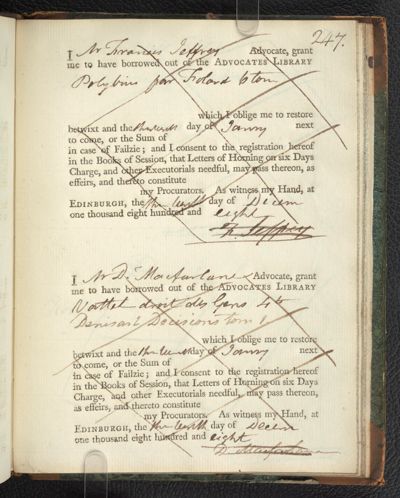 247.
I Mr Francis Jeffrey Advocate, grant
me to have borrowed out of the ADVOCATES LIBRARY
Polybius par Folard 6 tom
which I oblige me to restore
betwixt and the day of Janry next
to come, or the Sum of
in case of Failzie; and I consent to the registration hereof
in the Books of Session, that Letters of Horning on six Days
Charge, and other Executorials needful, may pass thereon, as
effeirs, and thereto constitute
my Procurators. As witness my Hand, at
EDINBURGH, the day of Decem
one thousand eight hundred and eight
F. Jeffrey
I Mr D. Macfarlane Advocate, grant
me to have borrowed out of the ADVOCATES LIBRARY
Vattel droit des Gens 4to
Denisart Decisions tom 1
which I oblige me to restore
betwixt and the day of Janry next
to come, or the Sum of
in case of Failzie; and I consent to the registration hereof
in the Books of Session, that Letters of Horning on six Days
Charge, and other Executorials needful, may pass thereon,
as effeirs, and thereto constitute
my Procurators. As witness my Hand, at
EDINBURGH, the day of Decem
one thousand eight hundred and eight
D. Macfarlane